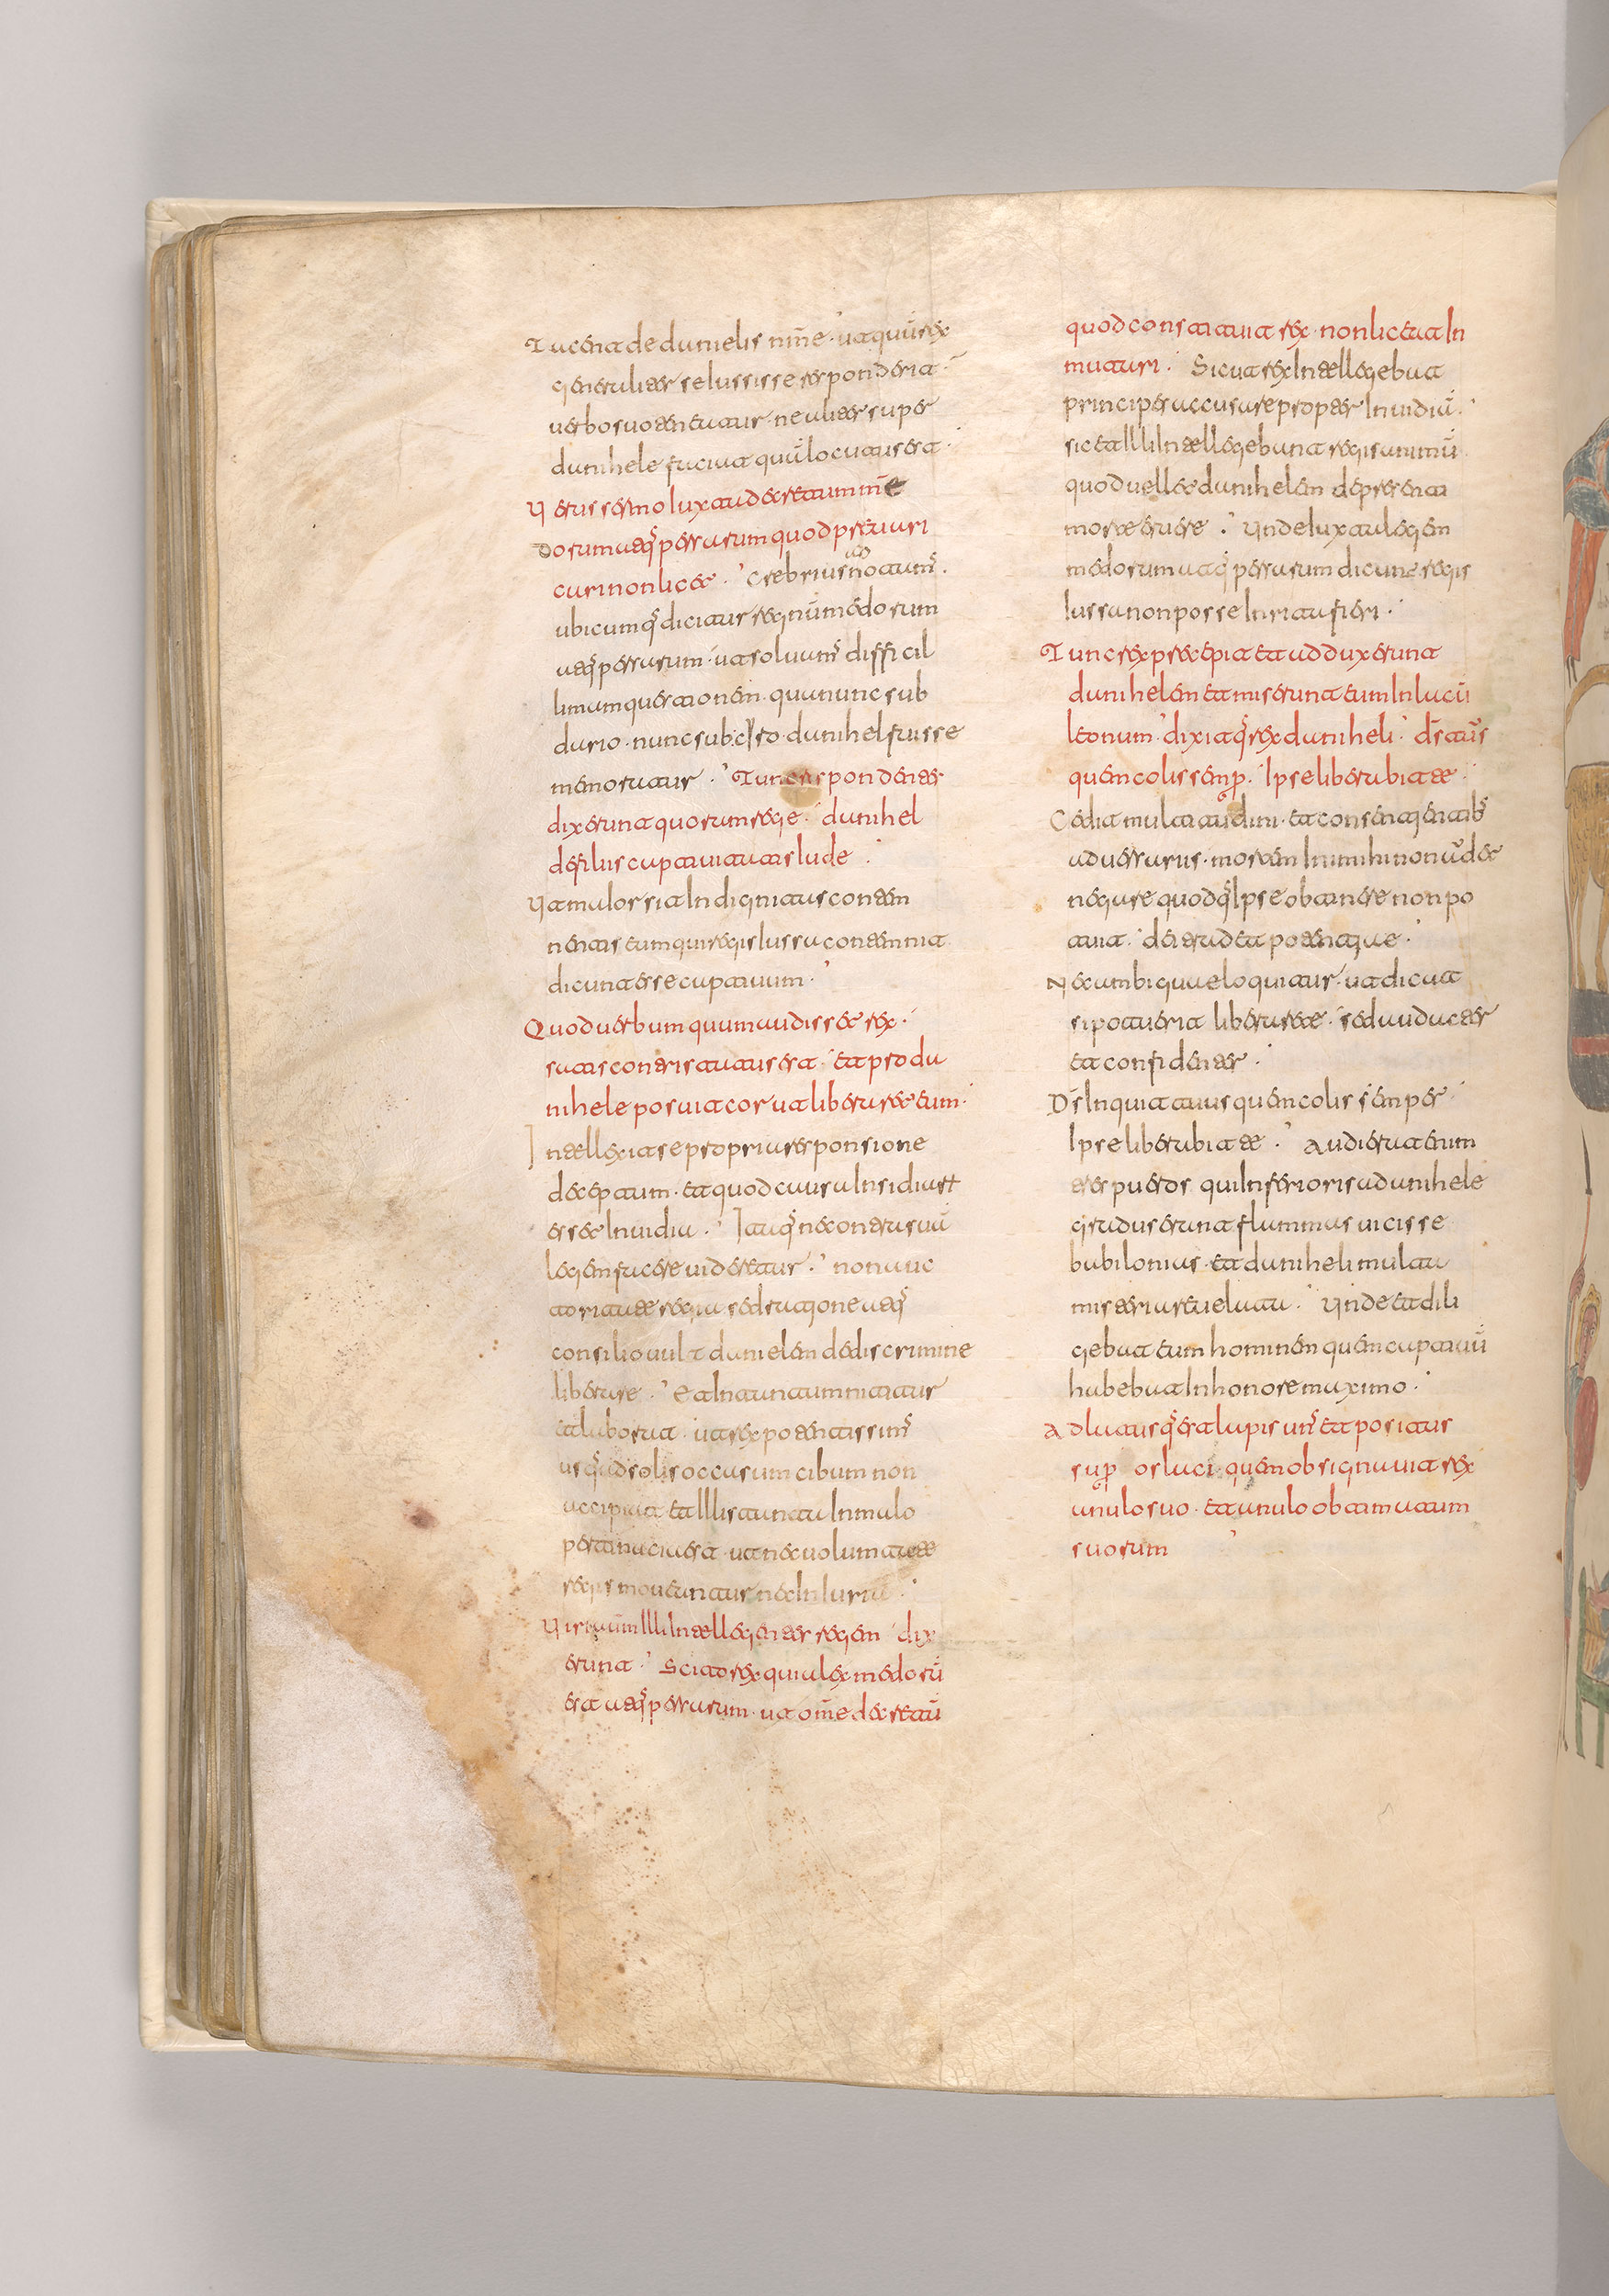 Tacent de danielis nm̄e · ut quū rex
generaliter se iussisse responderit ·
uerbo suo teneatur · ne aliter super
danihele faciat quā locutus est ·
Uerus sermo iuxta decretum me
dorum atq' persarum quod preuari
cari non licet · Crebrius notauim' ·
ubicumq' dicitur regnū medorum
atq' persarum · ut soluam' difficil
limam questionem · qua nunc sub
dario · nunc sub ciro · danihel fuisse
memoratur · Tunc respondentes
dixerunt quorum rege · danihel
de filiis captiuitatis iude ·
Ut amulos sit indignitas contem
nentis eum qui regis iussu contemnit
dicunt esse captiuum ·
Quod uerbum quum audisset rex ·
satis contristatus est · et pro da
nihele posuit cor ut liberaret eum ·
Intellexit se propria responsione
deceptum · et quod causa insidiarum
esset inuidia · Itaq' ne contra suā
legem facere uideretur · non auc
toritate regia sed ratione atq'
consilio uult danielem de discrimine
liberare · Et in tantum nititur
et laborat · ut rex potentissim'
usq' ad solis occasum cibum non
accipiat et illis tanta in malo
pertinacia est · ut nec uoluntate
regis moueantur nec iniuria ·
Uiri aūm illi intellegentes regem dix
erunt · Scito rex quia lex medorū
est atq' persarum · ut om̄e decretū
quod constituit rex · non liceat in
mutari · Sicut rex intellegebat
principes accusare propter inuidiā ·
sic et illi intellegebant regis animū
quod uellet danihelem de presenti
morte eruere · Unde iuxta legem
medorum atq' persarum dicunt regis
iussa non posse inrita fieri ·
Tunc rex precepit et adduxerunt
danihelem et miserunt eum in lacū
leonum · dixitq' rex daniheli · ds̄ tuus
quem colis semp̱ · ipse liberabit te ·
Cedit multitudini · et consentientib'
aduersariis · mortem inimihi non audet
negare quodq' ipse obtinere non po
tuit · dei tradet potentie ·
Nec ambigue loquitur · ut dicat
si potuerit liberare te · sed audacter
et confidenter ·
Ds̄ inquit tuus quem colis semper ·
ipse liberabit te · Audierat enim
tres pueros qui inferioris a danihele
gradus erant flammas uicisse
babilonias · et daniheli multa
misteria reuelata · Unde et dili
gebat eum hominem quem captiuū
habebat in honore maximo ·
Adlatusq' est lapis un' et positus
sup̱ os laci · quem obsignauit rex
anulo suo · et anulo obtimatum
suorum